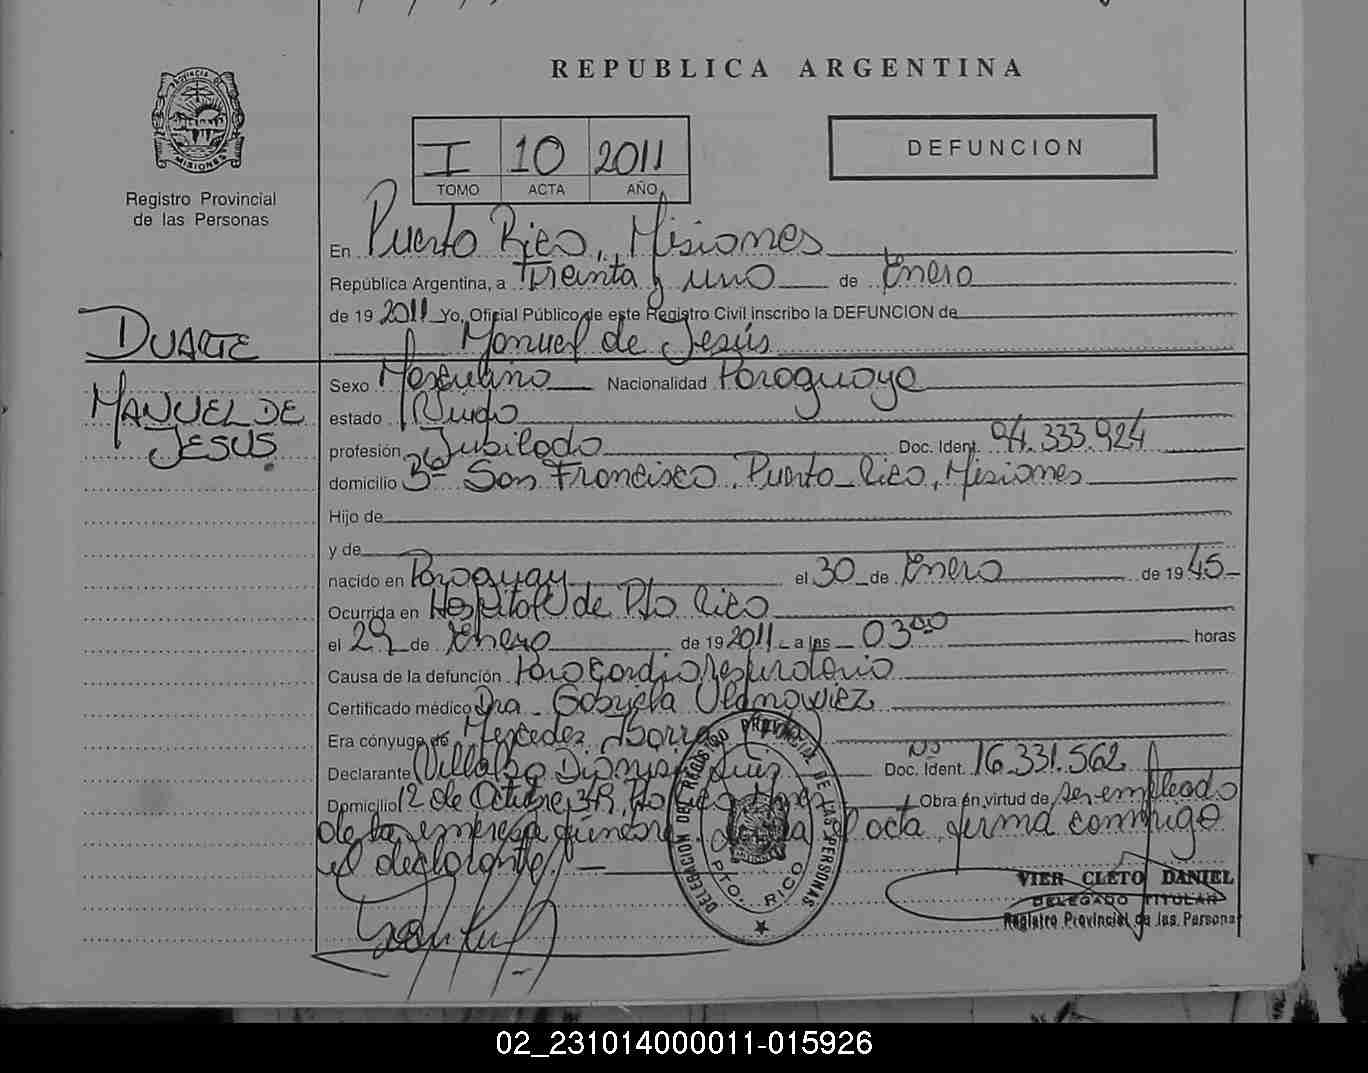 REPUBLICA ARGENTINA
PROVINCIA DE
MISIONES
Registro Provincial
de las Personas
I 10 2011
TOMO ACTA AÑO
DEFUNCION
En Puerto Rico, Misiones
República Argentina, a Treinta y uno de Enero
de 19 2011 Yo, Oficial Público de este Registro Civil inscribo la DEFUNCION de
DUARTE
Manuel de Jesús
MANUEL DE
JESUS
Sexo Masculino Nacionalidad Paraguaya
estado Viudo
profesión Jubilado Doc. Ident. 94.333.924
domicilio Bº San Francisco, Puerto Rico, Misiones
Hijo de
y de
nacido en Paraguay el 30 de Enero de 19 45
Ocurrida en Hospital de Pto Rico
el 29 de Enero de 19 2011 a las 03 00 horas
Causa de la defunción Paro cardiorespiratorio
Certificado médico Dra Gabriela
Era cónyuge de Mercedes
Declarante Villalba Dionisio Luis Doc. Ident. Nº 16.331.562
Domicilio 12 de Octubre 319, Pto Rico Obra en virtud de ser empleado
de la empresa el acta firma conmigo
el declarante.
DELEGACION DEL REGISTRO PROVINCIAL DE LAS PERSONAS
PTO. RICO
VIER CLETO DANIEL
DELEGADO TITULAR
Registro Provincial de las Persona
02_231014000011-015926